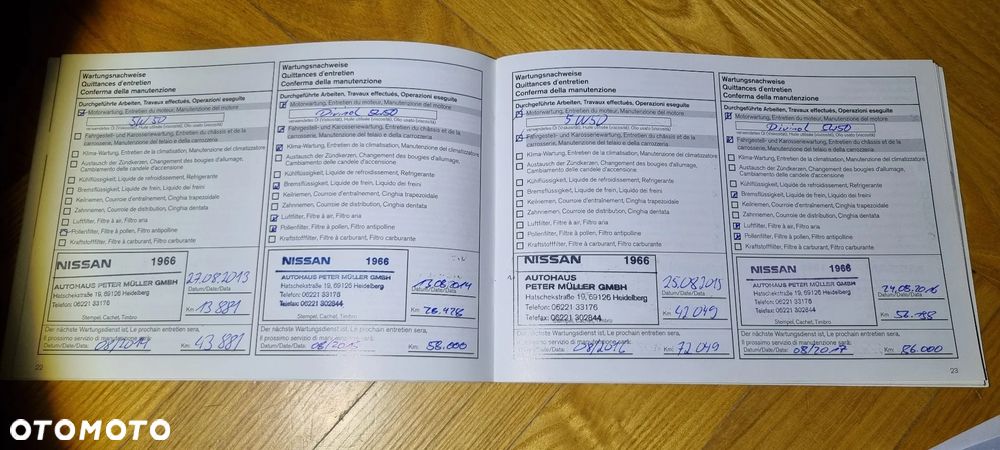 Wartungsnachweise
Quittances d'entretien
Conferma della manutenzione
Durchgeführte Arbeiten, Travaux effectués, Operazioni eseguite
Motorwartung, Entretien du moteur, Manutenzione del motore
5W50
verwendetes Öl (Viskosität), Huile utilisée (viscosité), Olio usato (viscosità)
Fahrgestell- und Karosseriewartung, Entretien du châssis et de la
carrosserie, Manutenzione del telaio e della carrozzeria
Klima-Wartung, Entretien de la climatisation, Manutenzione del climatizzatore
Austausch der Zündkerzen, Changement des bougies d'allumage,
Cambiamento delle candele d'accensione
Kühlflüssigkeit, Liquide de refroidissement, Refrigerante
Bremsflüssigkeit, Liquide de frein, Liquido dei freini
Keilriemen, Courroie d'entraînement, Cinghia trapezoidale
Zahnriemen, Courroie de distribution, Cinghia dentata
Luftfilter, Filtre à air, Filtro aria
Pollenfilter, Filtre à pollen, Filtro antipolline
Kraftstofffilter, Filtre à carburant, Filtro carburante
NISSAN 1966
AUTOHAUS PETER MÜLLER GMBH
Hatschekstraße 19, 69126 Heidelberg
Telefon: 06221 33176
Telefax: 06221 302844
Stempel, Cachet, Timbro
27.08.2013
Datum/Date/Data
Km: 13881
Der nächste Wartungsdienst ist, Le prochain entretien sera,
Il prossimo servizio di manutenzione sarà:
Datum/Date/Data: 08/2014 Km: 43881
22
Wartungsnachweise
Quittances d'entretien
Conferma della manutenzione
Durchgeführte Arbeiten, Travaux effectués, Operazioni eseguite
Motorwartung, Entretien du moteur, Manutenzione del motore
Divinol 5W50
verwendetes Öl (Viskosität), Huile utilisée (viscosité), Olio usato (viscosità)
Fahrgestell- und Karosseriewartung, Entretien du châssis et de la
carrosserie, Manutenzione del telaio e della carrozzeria
Klima-Wartung, Entretien de la climatisation, Manutenzione del climatizzatore
Austausch der Zündkerzen, Changement des bougies d'allumage,
Cambiamento delle candele d'accensione
Kühlflüssigkeit, Liquide de refroidissement, Refrigerante
Bremsflüssigkeit, Liquide de frein, Liquido dei freini
Keilriemen, Courroie d'entraînement, Cinghia trapezoidale
Zahnriemen, Courroie de distribution, Cinghia dentata
Luftfilter, Filtre à air, Filtro aria
Pollenfilter, Filtre à pollen, Filtro antipolline
Kraftstofffilter, Filtre à carburant, Filtro carburante
NISSAN 1966
AUTOHAUS PETER MÜLLER GMBH
Hatschekstraße 19, 69126 Heidelberg
Telefon: 06221 33176
Telefax: 06221 302844
Stempel, Cachet, Timbro
13.08.2014
Datum/Date/Data
Km: 26.428
Der nächste Wartungsdienst ist, Le prochain entretien sera,
Il prossimo servizio di manutenzione sarà:
Datum/Date/Data: 08/2015 Km: 58.000
Wartungsnachweise
Quittances d'entretien
Conferma della manutenzione
Durchgeführte Arbeiten, Travaux effectués, Operazioni eseguite
Motorwartung, Entretien du moteur, Manutenzione del motore
5W50
verwendetes Öl (Viskosität), Huile utilisée (viscosité), Olio usato (viscosità)
Fahrgestell- und Karosseriewartung, Entretien du châssis et de la
carrosserie, Manutenzione del telaio e della carrozzeria
Klima-Wartung, Entretien de la climatisation, Manutenzione del climatizzatore
Austausch der Zündkerzen, Changement des bougies d'allumage,
Cambiamento delle candele d'accensione
Kühlflüssigkeit, Liquide de refroidissement, Refrigerante
Bremsflüssigkeit, Liquide de frein, Liquido dei freini
Keilriemen, Courroie d'entraînement, Cinghia trapezoidale
Zahnriemen, Courroie de distribution, Cinghia dentata
Luftfilter, Filtre à air, Filtro aria
Pollenfilter, Filtre à pollen, Filtro antipolline
Kraftstofffilter, Filtre à carburant, Filtro carburante
NISSAN 1966
AUTOHAUS
PETER MÜLLER GMBH
Hatschekstraße 19, 69126 Heidelberg
Telefon: 06221 33176
Telefax: 06221 302844
Stempel, Cachet, Timbro
25.08.2015
Datum/Date/Data
Km: 42049
Der nächste Wartungsdienst ist, Le prochain entretien sera,
Il prossimo servizio di manutenzione sarà:
Datum/Date/Data: 08/2016 Km: 72049
Wartungsnachweise
Quittances d'entretien
Conferma della manutenzione
Durchgeführte Arbeiten, Travaux effectués, Operazioni eseguite
Motorwartung, Entretien du moteur, Manutenzione del motore
Divinol 5W50
verwendetes Öl (Viskosität), Huile utilisée (viscosité), Olio usato (viscosità)
Fahrgestell- und Karosseriewartung, Entretien du châssis et de la
carrosserie, Manutenzione del telaio e della carrozzeria
Klima-Wartung, Entretien de la climatisation, Manutenzione del climatizzatore
Austausch der Zündkerzen, Changement des bougies d'allumage,
Cambiamento delle candele d'accensione
Kühlflüssigkeit, Liquide de refroidissement, Refrigerante
Bremsflüssigkeit, Liquide de frein, Liquido dei freini
Keilriemen, Courroie d'entraînement, Cinghia trapezoidale
Zahnriemen, Courroie de distribution, Cinghia dentata
Luftfilter, Filtre à air, Filtro aria
Pollenfilter, Filtre à pollen, Filtro antipolline
Kraftstofffilter, Filtre à carburant, Filtro carburante
NISSAN 1966
AUTOHAUS PETER MÜLLER GMBH
Hatschekstraße 19, 69126 Heidelberg
Telefon: 06221 33176
Telefax: 06221 302844
Stempel, Cachet, Timbro
24.08.2016
Datum/Date/Data
Km:
Der nächste Wartungsdienst ist, Le prochain entretien sera,
Il prossimo servizio di manutenzione sarà:
Datum/Date/Data: 08/2017 Km: 86.000
23
OTOMOTO